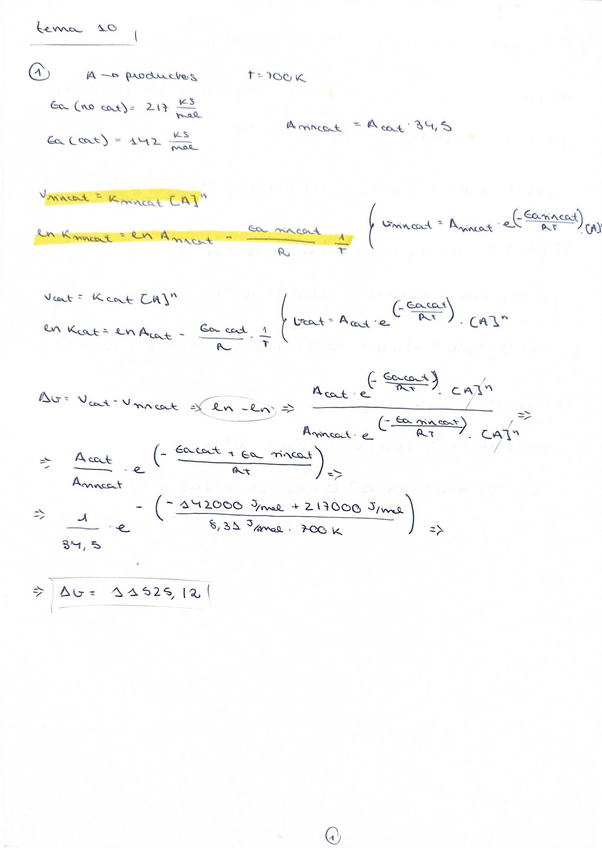 tema 10
① A → productos T = 700 K
Ea (no cat) = 217 KJ/mol
Ea (cat) = 142 KJ/mol
Asincat = Acat · 34,5
Vsincat = Ksincat [A]ⁿ
ln Ksincat = ln Asincat - Ea sincat / R · 1/T ( Vsincat = Asincat · e^(-Easincat/RT) · [A]ⁿ
Vcat = Kcat [A]ⁿ
ln Kcat = ln Acat - Ea cat / R · 1/T ( Vcat = Acat · e^(-Eacat/RT) · [A]ⁿ
Δv = Vcat - Vsincat ⇒ ln - ln ⇒ Acat · e^(-Eacat/RT) · [A]ⁿ / Asincat · e^(-Ea sincat/RT) · [A]ⁿ ⇒
⇒ Acat / Asincat · e^(- Eacat + Ea sincat / RT) ⇒
⇒ 1 / 34,5 · e^-(-142000 J/mol + 217000 J/mol / 8,31 J/mol · 700 K) ⇒
⇒ Δv = 11525,12
1